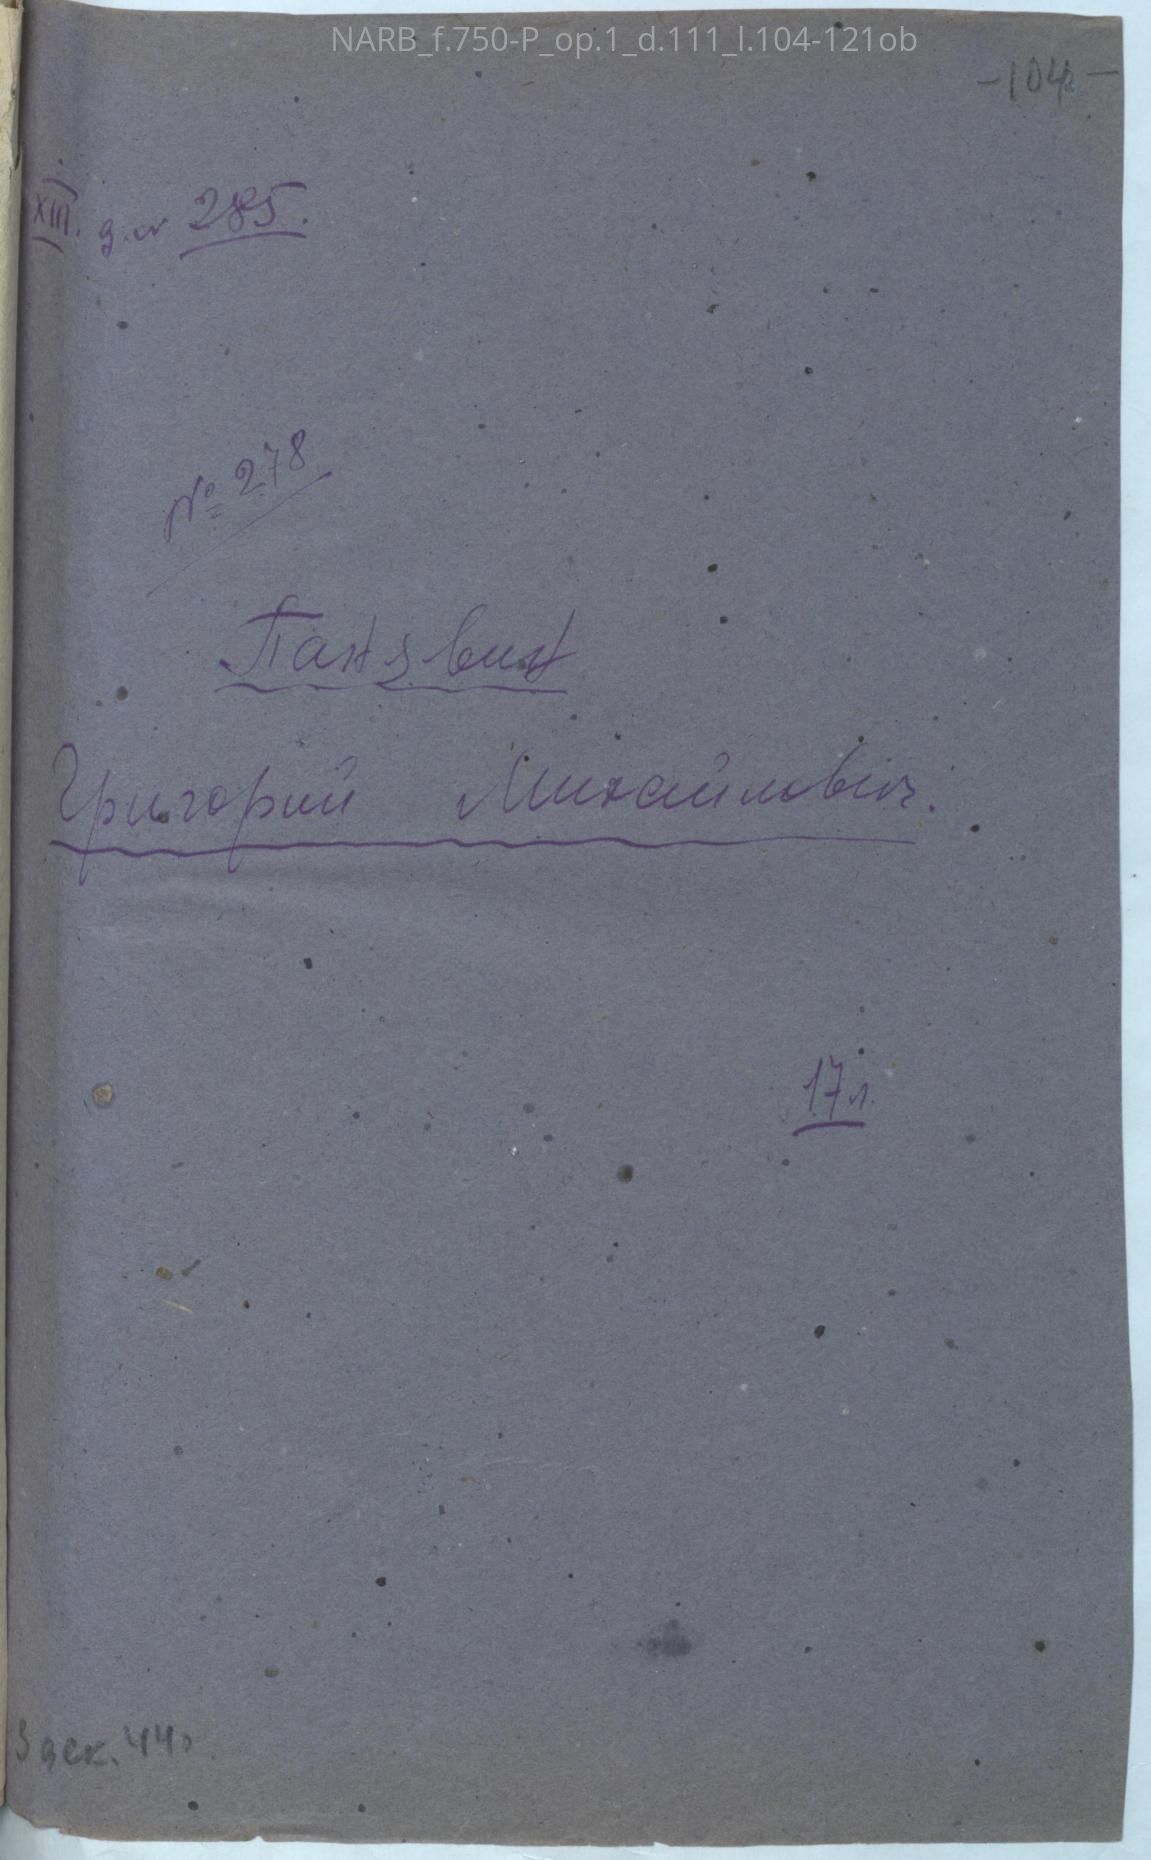 NARB_f.750-P_op.1_d.111_l.104-121ob
-104-
XIII. д. № 285.
№ 278
Григорий Михайлович.
17 л.
3 дек. 44 г